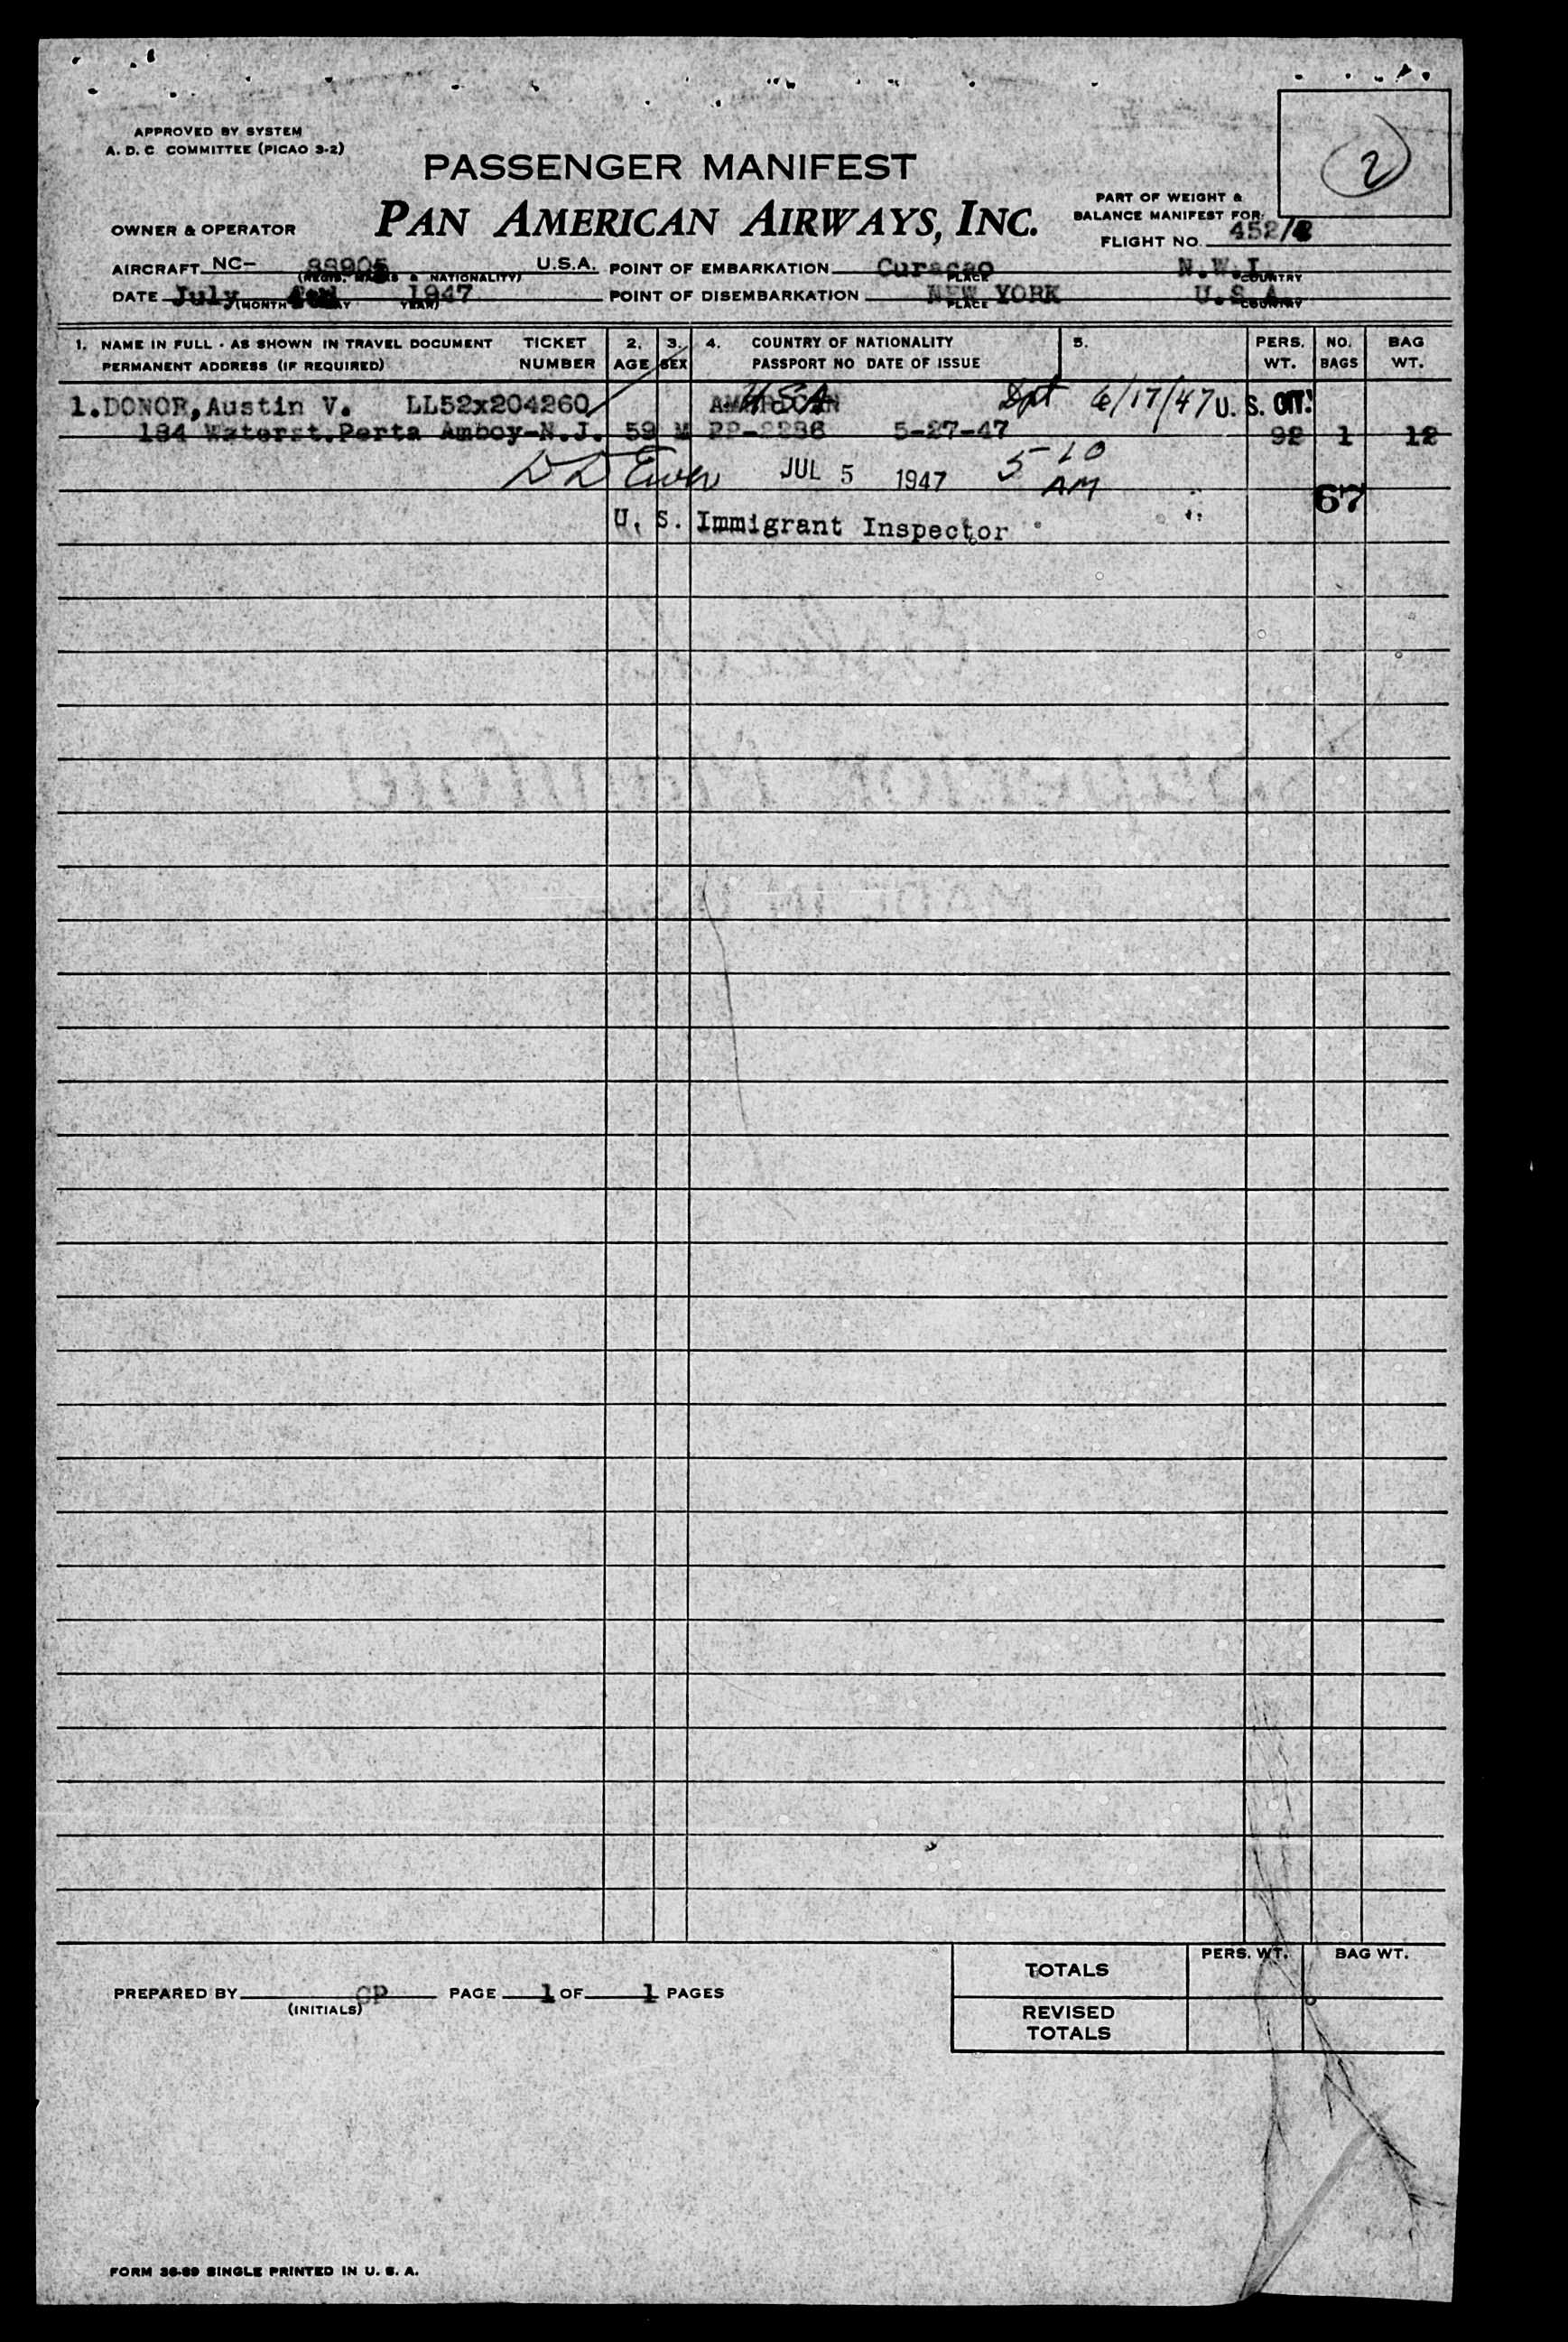 APPROVED BY SYSTEM
A. D. C. COMMITTEE (PICAO 3-2)
2
PASSENGER MANIFEST
PAN AMERICAN AIRWAYS, INC.
PART OF WEIGHT &
BALANCE MANIFEST FOR:
OWNER & OPERATOR
FLIGHT NO. 452/
AIRCRAFT NC- 88905 U.S.A. POINT OF EMBARKATION Curacao N.W.I.
(REGIS. MARKS & NATIONALITY) PLACE COUNTRY
DATE July 1947 POINT OF DISEMBARKATION NEW YORK U.S.A.
(MONTH DAY YEAR) PLACE COUNTRY
1. NAME IN FULL - AS SHOWN IN TRAVEL DOCUMENT TICKET 2. 3. 4. COUNTRY OF NATIONALITY 5. PERS. NO. BAG
PERMANENT ADDRESS (IF REQUIRED) NUMBER AGE SEX PASSPORT NO DATE OF ISSUE WT. BAGS WT.
1. DONOR, Austin V. LL52x204260 AMERICAN USA Dpt 6/17/47 U. S. CIT.
184 Waterst. Perta Amboy-N.J. 59 M PP-2286 5-27-47 92 1 12
JUL 5 1947 5 10
AM
67
U. S. Immigrant Inspector
MADE IN
TOTALS PERS. WT. BAG WT.
PREPARED BY CP PAGE 1 OF 1 PAGES
(INITIALS)
REVISED
TOTALS
FORM 36-89 SINGLE PRINTED IN U. S. A.